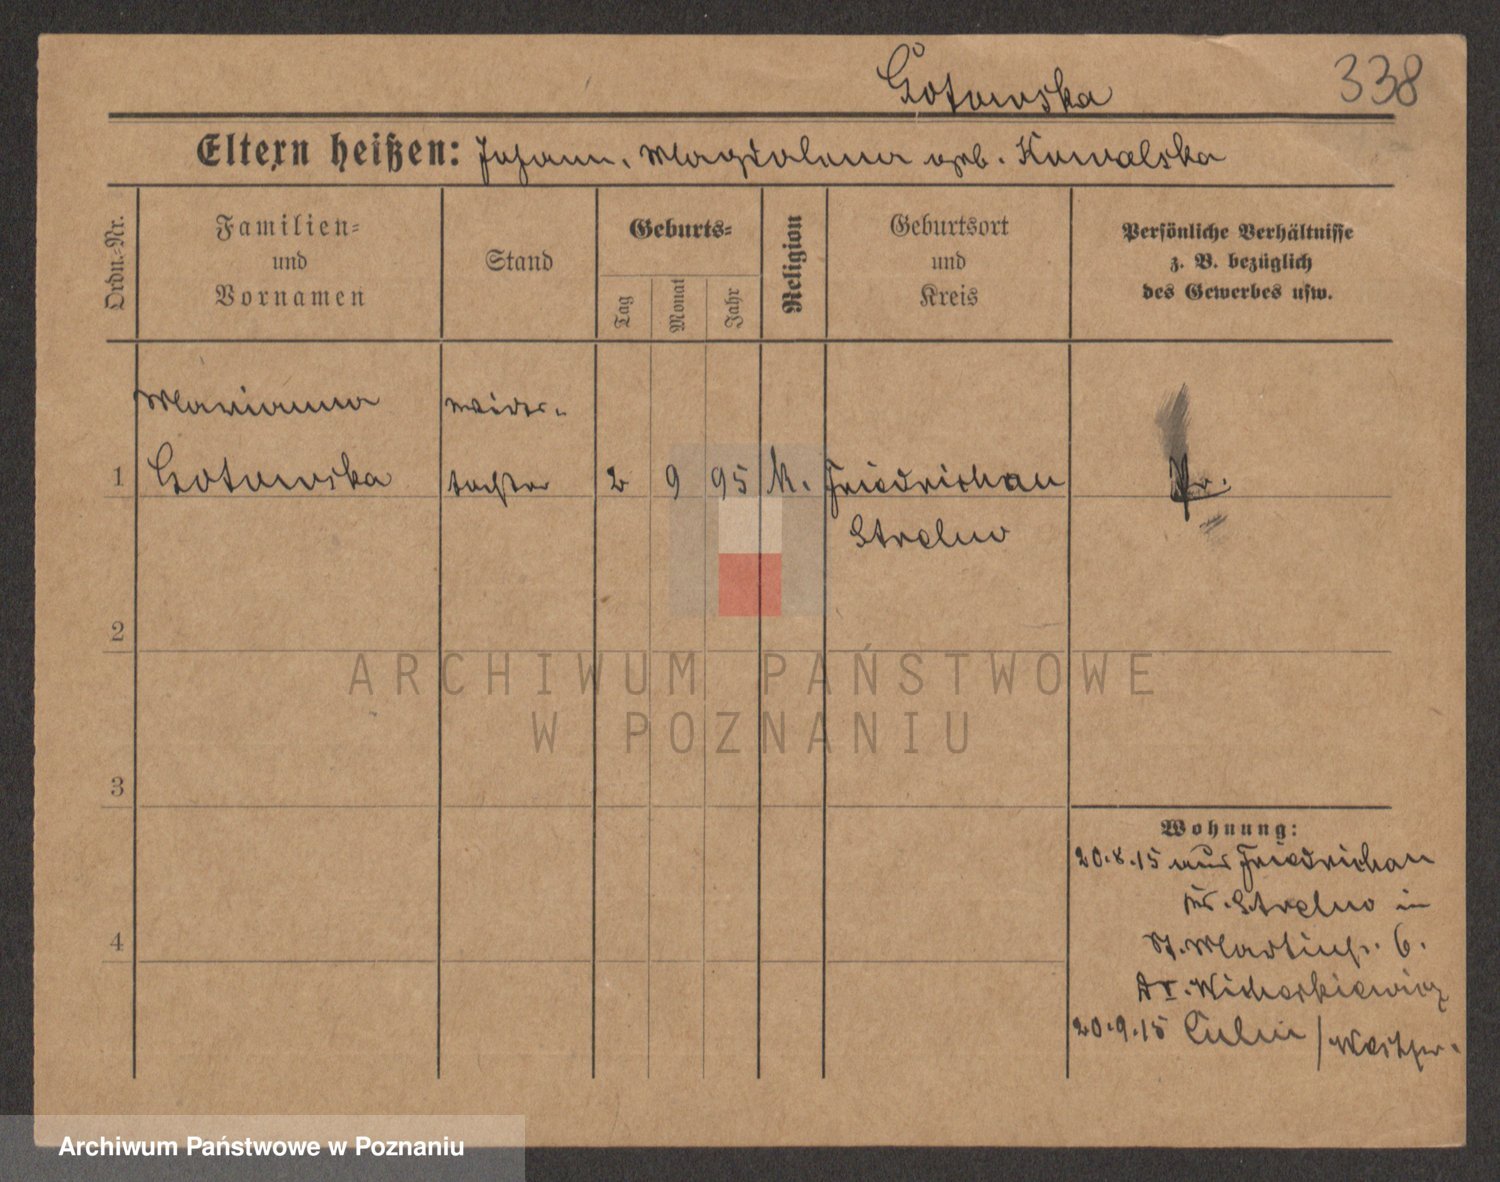 Gotowska 338
Eltern heißen: Johann, Magdalena geb. Kowalska
Ordn.-Nr.
Familien-
und
Vornamen
Stand
Geburts-
Tag
Monat
Jahr
Religion
Geburtsort
und
Kreis
Persönliche Verhältnisse
z. B. bezüglich
des Gewerbes usw.
Marianna
Gotowska
tochter
1
2 9 95 k. Friedrichau
Strelno
Pr.
2
3
4
Wohnung:
20.8.15 aus Friedrichau
Kr. Strelno in
St. Martinstr. 6.
Dr. Wicherkiewicz
20.9.15 Culm / Westpr.
ARCHIWUM PAŃSTWOWE
W POZNANIU
Archiwum Państwowe w Poznaniu